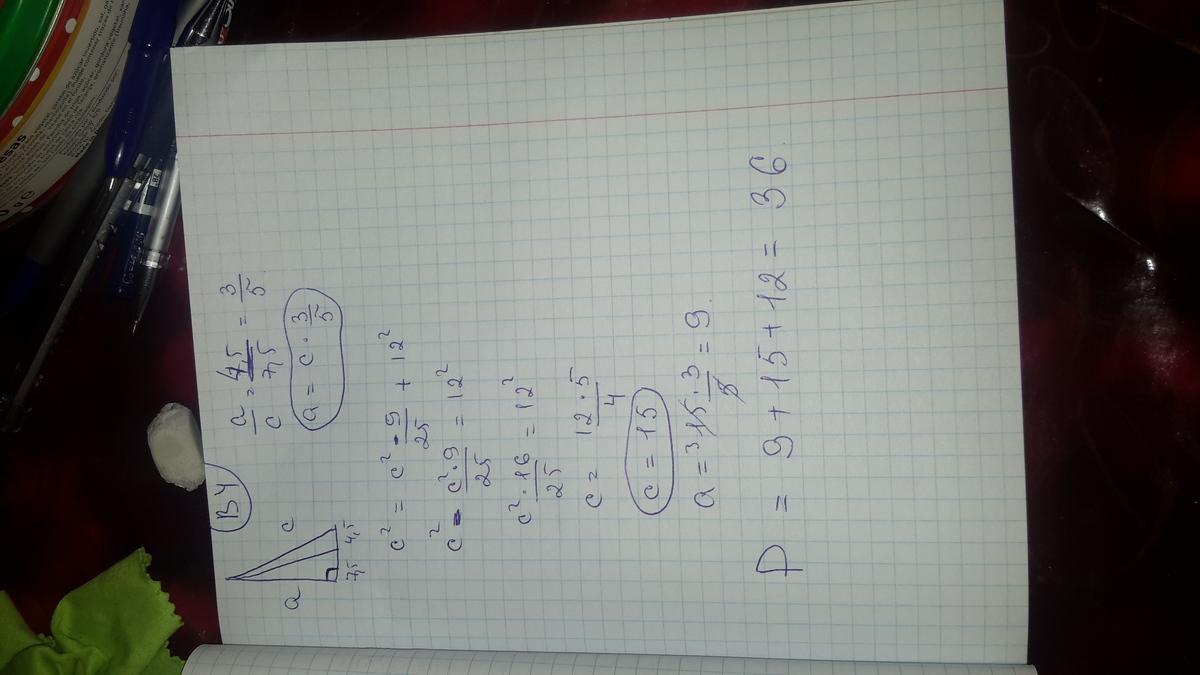 B4
a c
7,5 4,5
a/c = 4,5/7,5 = 3/5
a = c · 3/5
c² = c² · 9/25 + 12²
c² - c²·9/25 = 12²
c² · 16/25 = 12²
c = 12·5/4
c = 15
a = ³15·3/5 = 9.
P = 9 + 15 + 12 = 36.
esas